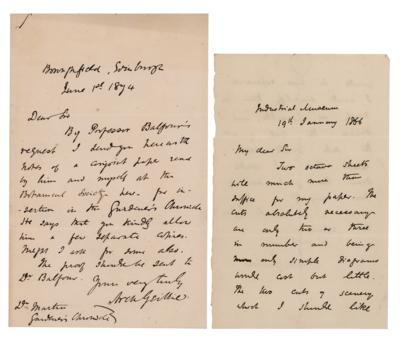 Edinburgh
June 1st 1874
Dear Sir
By Professor Balfour's
request I send you herewith
notes of a conjoint paper read
by him and myself at the
Botanical Society here for in-
sertion in the Gardener's Chronicle
He says that you kindly allow
him a few separate copies.
I ask for some also.
The proof should be sent to
Dr Balfour. Yours very truly
Arch Geikie
Dr Masters
Gardener's Chronicle
Industrial Museum
19th January 1866
My dear Sir
Two octavo sheets
will much more than
suffice for my paper. The
cuts absolutely necessary
are only two or three
in number and being
only simple diagrams
would cost but little.
The two cuts of scenery
which I should like